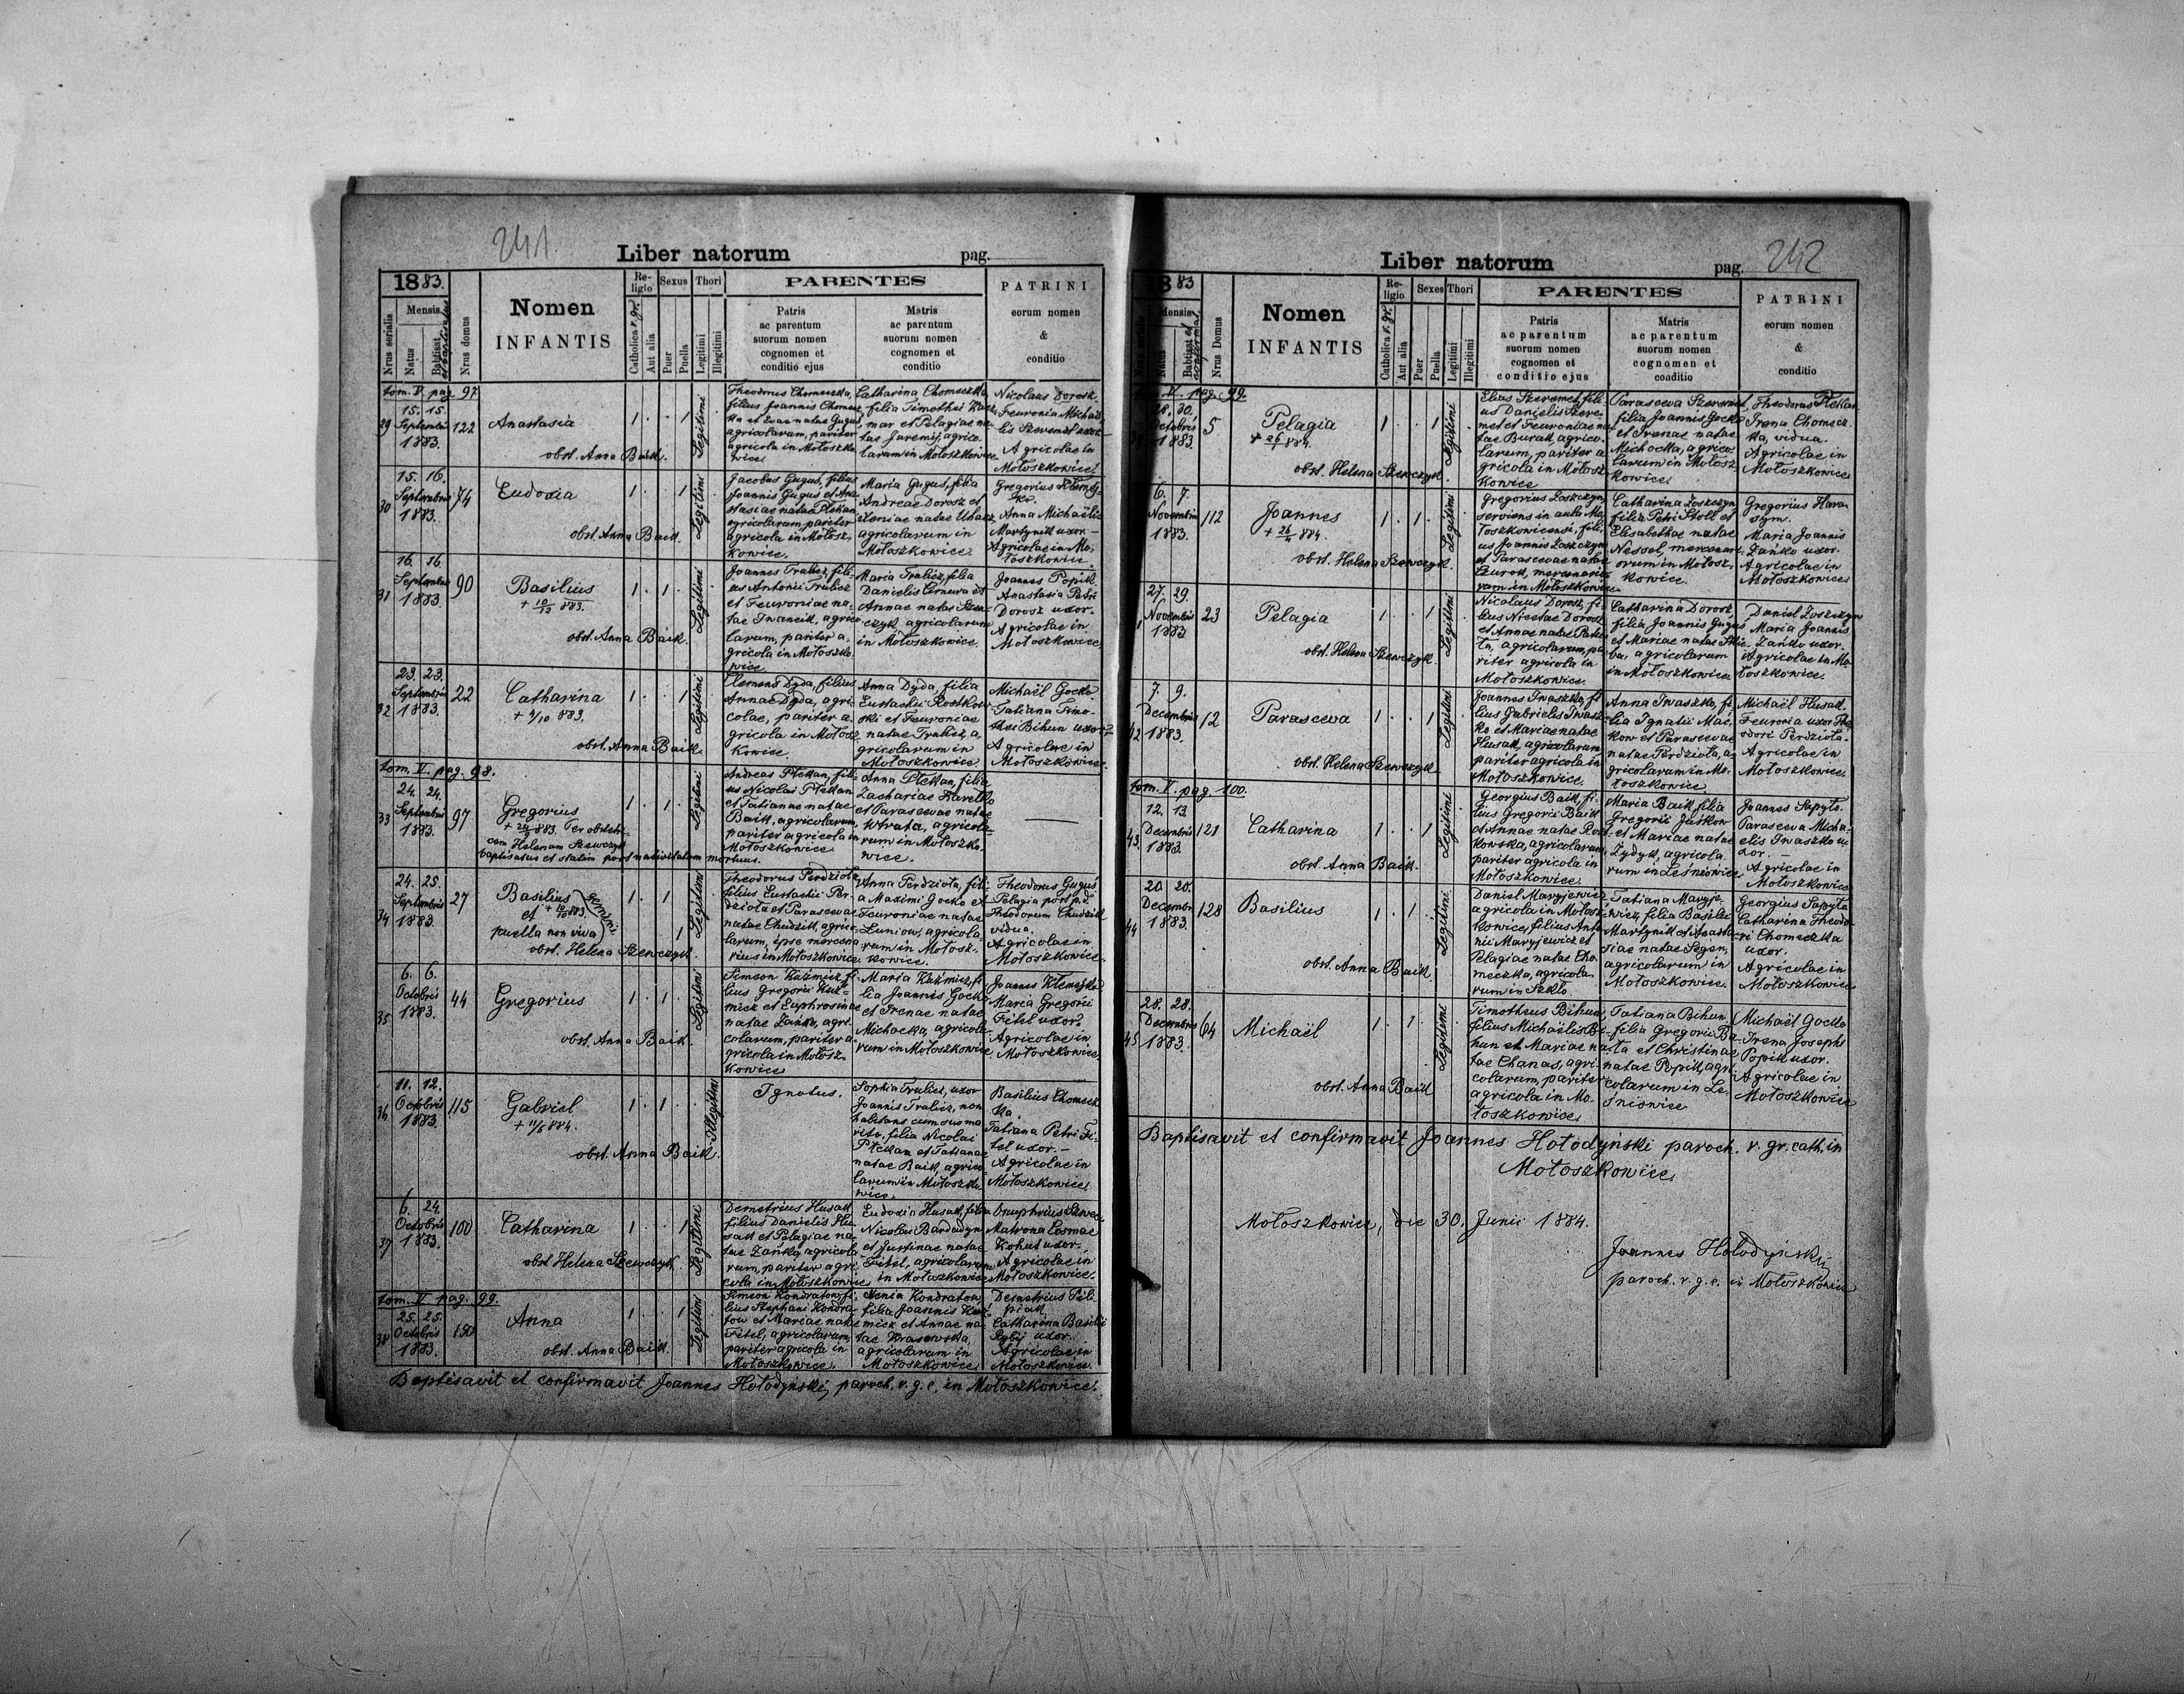 241
Liber natorum
pag.
1883.
Nrus serialis
Mensis
Natus
Babtisat
Nrus domus
Nomen
INFANTIS
Religio
Catholica r. gr.
Aut alia
Sexus
Puer
Puella
Thori
Legitimi
Illegitimi
PARENTES
Patris
ac parentum
suorum nomen
cognomen et
conditio ejus
Matris
ac parentum
suorum nomen
cognomen et
conditio
PATRINI
eorum nomen
&
conditio
tom. V. pag. 97.
29
15. 15.
Septembris
1883.
122
Anastasia
obst. Anna Baik.
Legitimi
Theodorus Chomeczka,
filius Joannis Chomecz
ka et Evae natae Gugus,
agricolarum, pariter
agricola in Mołoszko
wice.
Catharina Chomeczka,
filia Timothei Kacz
mar et Pelagiae na
tae Jaremij, agrico
larum in Mołoszkowice
Nicolaus Dorosz.
Feuronia Michaë
lis Szeremet uxor
Agricolae in
Mołoszkowice.
30
15. 16.
Septembris
1883.
74
Eudoxia
obst. Anna Baik.
Legitimi
Jacobus Gugus, filius
Joannis Gugus et Ana
stasiae natae Plekan
agricolarum, pariter
agricola in Mołosz
kowice.
Maria Gugus, filia
Andreae Dorosz et
Xeniae natae
agricolarum in
Mołoszkowice.
Gregorius Klemej
ko.
Anna Michaëlis
Martynik uxor
Agricolae in Mo
łoszkowice.
31
16. 16.
Septembris
1883.
90
Basilius
+ 883.
obst. Anna Baik.
Legitimi
Joannes Trulicz, fili
us Antonii Trulicz
et Feuroniae na
tae Iwancik, agrico
larum, pariter a
gricola in Mołoszko
wice.
Maria Trulicz, filia
Danielis Cenura et
Annae natae Szew
czyk, agricolarum
in Mołoszkowice.
Joannes Popik.
Anastasia Petri
Dorosz uxor.
Agricolae in
Mołoszkowice
32
23. 23.
Septembris
1883.
22
Catharina
+ 4/10 883.
obst. Anna Baik.
Legitimi
Clemens Dyda, filius
Annae Dyda, agri
colae, pariter a
gricola in Mołosz
kowice.
Anna Dyda, filia
Eustachii Rostkow
ski et Feuroniae
natae Trulicz, a
gricolarum in
Mołoszkowice.
Michaël Gocko
Tatiana Timo
thei Bihun uxor
Agricolae in
Mołoszkowice.
tom. V. pag. 98.
33
24. 24.
Septembris
1883.
97
Gregorius
+ 24/9 883. Per obstetri
cem Helenam Szewczyk
baptisatus et statim post nativitatem mortuus.
Legitimi
Andreas Plekan, fili
us Nicolai Plekan
et Tatianae natae
Baik, agricolarum,
pariter agricola in
Mołoszkowice
Anna Plekan, filia
Zachariae Hawelko
et Parascevae natae
Utrata, agricola
rum in Mołoszko
wice.
34
24. 25.
Septembris
1883.
27
Basilius
et + 883.
gemini
puella non viva
obst. Helena Szewczyk.
Legitimi
Theodorus Perdzioła
filius Eustachii Per
dzioła et Parascevae
natae Chudzik, agrico
larum, ipse mercena
rius in Mołoszkowice.
Anna Perdzioła, fili
a Maximi Gocko et
Feuroniae natae
Luniow, agricola
rum in Mołosz
kowice.
Theodorus Guguś
Pelagia post p.d.
Theodorum Chudzik
vidua.
Agricolae in
Mołoszkowice
35
6. 6.
Octobris
1883.
44
Gregorius
obst. Anna Baik.
Legitimi
Simeon Kuźmicz, fi
lius Gregorii Kuź
micz et Euphrosinae
natae Zańko, agri
colarum, pariter a
gricola in Mołosz
kowice
Maria Kuźmicz, fi
lia Joannis Gocko
et Irenae natae
Michocka, agricola
rum in Mołoszkowice
Joannes Klemejko
Maria Gregorii
Fitel uxor.
Agricolae in
Mołoszkowice
36
11. 12.
Octobris
1883.
115
Gabriel
+ 11/5 884.
obst. Anna Baik.
Illegitimi
Ignotus.
Sophia Trulicz, uxor
Joannis Trulicz, non
habitans cum suo ma
rito, filia Nicolai
Plekan et Tatianae
natae Baik, agrico
larum in Mołoszko
wice.
Basilius Chomecz
ka.
Tatiana Petri Fi
tel uxor.
Agricolae in
Mołoszkowice
37
6. 24.
Octobris
1883.
100
Catharina
obst. Helena Szewczyk.
Legitimi
Demetrius Husak
filius Danielis Hu
sak et Pelagiae na
tae Zańko, agricola
rum, pariter agri
cola in Mołoszkowice
Eudoxia Husak, filia
Nicolai Bardadyn
et Justinae natae
Fitel, agricolarum
in Mołoszkowice
Onuphrius
Matrona Cosmae
Kohut uxor.
Agricolae in
Mołoszkowice.
tom. V. pag. 99.
38
25. 25.
Octobris
1883.
150
Anna
obst. Anna Baik.
Legitimi
Simeon Kondratow, fi
lius Stephani Kondra
tow et Mariae natae
Fitel, agricolarum,
pariter agricola in
Mołoszkowice.
Xenia Kondratow,
filia Joannis Kuź
micz et Annae na
tae Krasowska,
agricolarum in
Mołoszkowice.
Demetrius Pili
piak
Catharina Basilii
uxor.
Agricolae in
Mołoszkowice.
Baptisavit et confirmavit Joannes Hołodyński, paroch. r. g. c. in Mołoszkowice.
Liber natorum
pag. 242
83
Mensis
Natus
Babtisat et
confirmat
Nrus Domus
Nomen
INFANTIS
Religio
Catholica r. gr.
Aut alia
Sexes
Puer
Puella
Thori
Legitimi
Illegitimi
PARENTES
Patris
ac parentum
suorum nomen
cognomen et
conditio ejus
Matris
ac parentum
suorum nomen
cognomen et
conditio
PATRINI
eorum nomen
&
conditio
tom. V. pag. 99.
28. 30.
Octobris
1883
5
Pelagia
+ 884.
obst. Helena Szewczyk.
Legitimi
Elias Szeremet, fili
us Danielis Szere
met et Feuroniae na
tae Burak, agrico
larum, pariter a
gricola in Mołosz
kowice
Parasceva Szeremet,
filia Joannis Gocko
et Irenae natae
Michocka, agrico
larum in Mołosz
kowice.
Theodorus Plekan
Irena Chomecz
ka, vidua.
Agricolae in
Mołoszkowice
6. 7.
Novembris
1883.
112
Joannes
+ 884.
obst. Helena Szewczyk.
Legitimi
Gregorius Łoszczyn
serviens in aula Mo
łoszkowicensi, fili
us Joannis Łoszczyn
et Parascevae natae
mercenario
rum in Mołoszkowice.
Catharina Łoszczyn
filia Petri Stoll et
Elisabethae natae
Nessel, mercenari
orum in Mołosz
kowice.
Gregorius Hara
sym.
Maria Joannis
Zańko uxor.
Agricolae in
Mołoszkowice
27. 29.
Novembris
1883
23
Pelagia
obst. Helena Szewczyk.
Legitimi
Nicolaus Dorosz, fi
lius Nicetae Dorosz
et Annae natae
agricolarum, pa
riter agricola in
Mołoszkowice.
Catharina Dorosz
filia Joannis Gugus
et Mariae natae
agricolarum
in Mołoszkowice
Daniel Łoszczyn
Maria Joannis
Zańko uxor.
Agricolae in Mo
łoszkowice.
42
7. 9.
Decembris
1883.
12
Parasceva
obst. Helena Szewczyk
Legitimi
Joannes Iwaszko, fi
lius Gabrielis Iwasz
ko et Mariae natae
Husak, agricolarum
pariter agricola in
Mołoszkowice.
Anna Iwaszko, fi
lia Ignatii Mać
kow et Parascevae
natae Perdzioła, a
gricolarum in Mo
łoszkowice
Michaël Husak.
Feuronia uxor The
odori Perdzioła.
Agricolae in
Mołoszkowice.
tom. V. pag. 100.
43.
12. 13.
Decembris
1883
121
Catharina
obst. Anna Baik.
Legitimi
Georgius Baik, fi
lius Gregorii Baik
et Annae natae Rost
kowska, agricolarum
pariter agricola in
Mołoszkowice.
Maria Baik, filia
Gregorii Juśkow
et Mariae natae
Zydyk, agricola
rum in Leśniowice
Joannes Sapyto.
Parasceva Micha
elis Iwaszko u
xor.
Agricolae in
Mołoszkowice
44
20. 20.
Decembr
1883.
128
Basilius
obst. Anna Baik
Legitimi
Daniel Maryjewicz
agricola in Mołosz
kowice, filius Anto
nii Maryjewicz et
Pelagiae natae Cho
meczka, agricola
rum in Szkło
Tatiana Maryje
wicz, filia Basilii
Martynik et Anasta
siae natae Segen,
agricolarum in
Mołoszkowice.
Georgius Sapyta
Catharina Theodo
ri Chomeczka
uxor.
Agricolae in
Mołoszkowice
45
28. 28.
Decembris
1883.
64
Michaël
obst. Anna Baik
Legitimi
Timotheus Bihun,
filius Michaëlis Bi
hun et Mariae na
tae Chanas, agri
colarum, pariter
agricola in Mo
łoszkowice
Tatiana Bihun
filia Gregorii Ba
ta et Christinae
natae Popik, agri
colarum in Le
śniowice
Michaël Gocko
Irena Josephi
Popik uxor.
Agricolae in
Mołoszkowice
Baptisavit et confirmavit Joannes Hołodyński paroch. r. gr. cath. in
Mołoszkowice
Mołoszkowice, die 30. Junii 1884.
Joannes Hołodyński
paroch. r. g. c. in Mołoszkowice